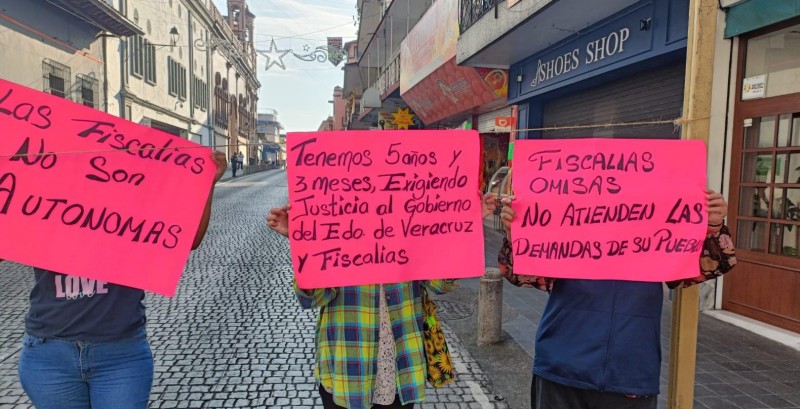 Las Fiscalías
No Son
Autonomas
Tenemos 5 años y
3 meses, Exigiendo
Justicia al Gobierno
del Edo. de Veracruz
y Fiscalías
Fiscalias
omisas
No Atienden Las
Demandas de su Pueblo
Ashoes Shop
LOVE